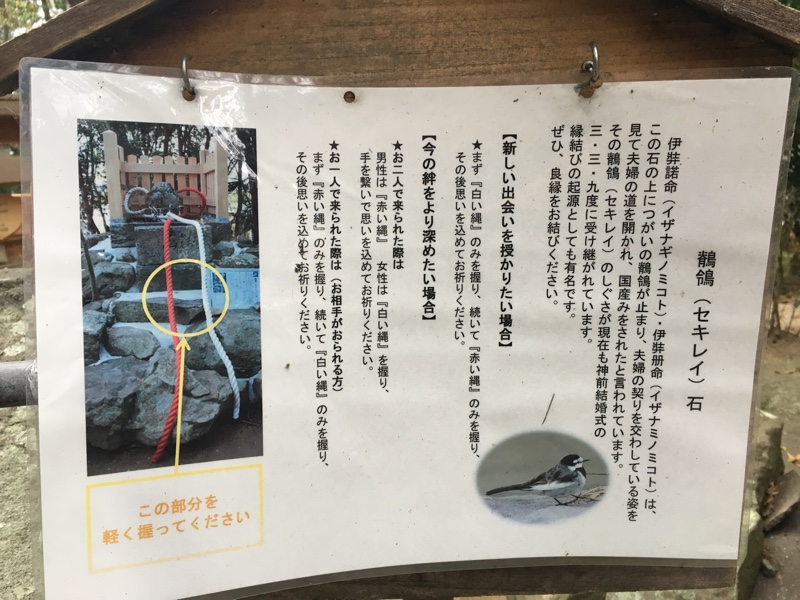 鶺鴒（セキレイ）石
伊弉諾命（イザナギノミコト）・伊弉册命（イザナミノミコト）は、
この石の上につがいの鶺鴒が止まり、夫婦の契りを交わしている姿を
見て夫婦の道を開かれ、国産みをされたと言われています。
その鶺鴒（セキレイ）のしぐさが現在も神前結婚式の
三・三・九度に受け継がれています。
縁結びの起源としても有名です。
ぜひ、良縁をお結びください。
【新しい出会いを授かりたい場合】
★まず『白い縄』のみを握り、続いて『赤い縄』のみを握り、
その後思いを込めてお祈りください。
【今の絆をより深めたい場合】
★お二人で来られた際は
男性は『赤い縄』　女性は『白い縄』を握り、
手を繋いで思いを込めてお祈りください。
★お一人で来られた際は（お相手がおられる方）
まず『赤い縄』のみを握り、続いて『白い縄』のみを握り、
その後思いを込めてお祈りください。
この部分を
軽く握ってください